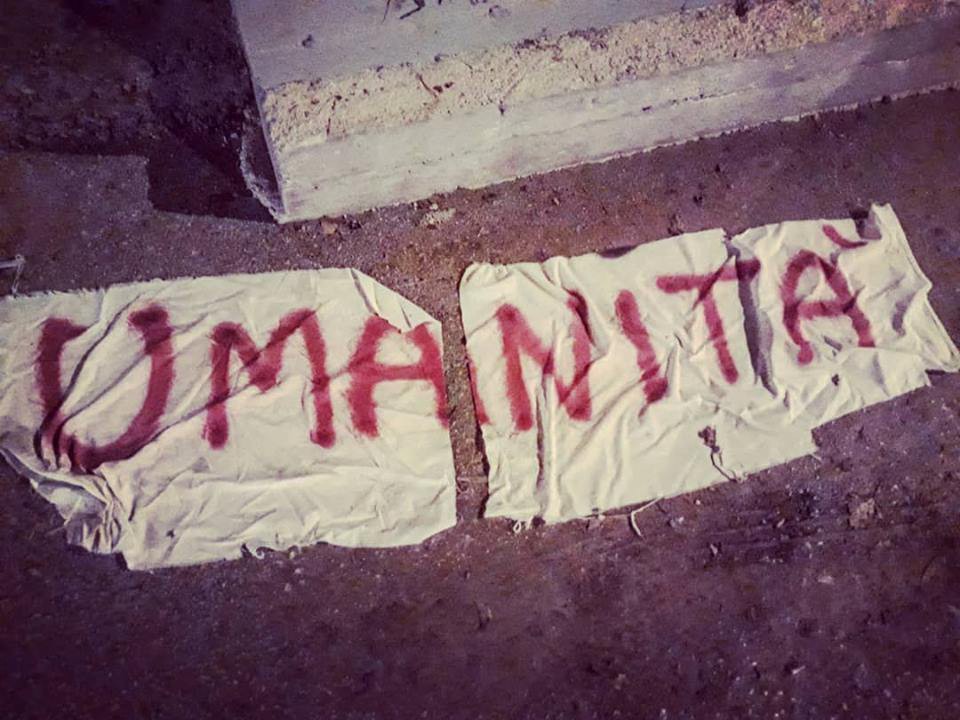 UMANITÀ